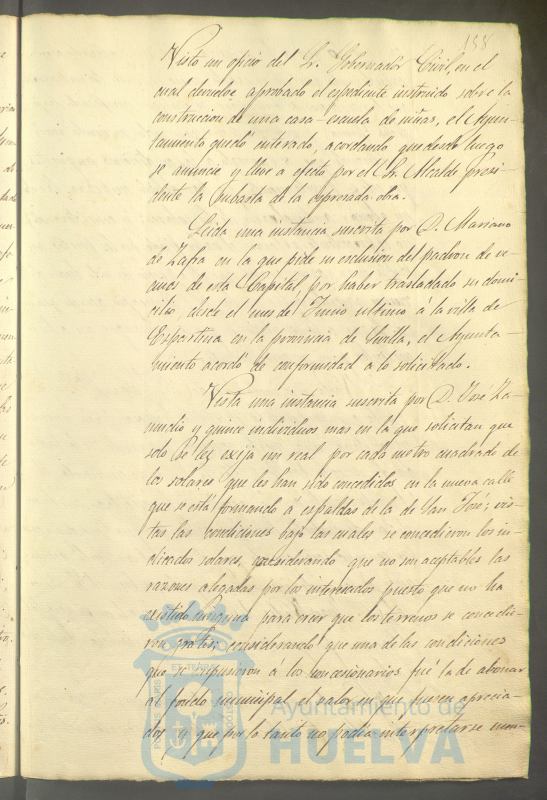 158
Visto un oficio del Sr. Gobernador Civil, en el
cual devuelve aprobado el espediente instruido sobre la
construccion de una casa-escuela de niñas, el Ayun-
tamiento quedó enterado, acordando que desde luego
se anuncie y lleve a efecto por el Sr. Alcalde presi-
dente la subasta de la espresada obra.
Leida una instancia suscrita por D. Mariano
de Zafra en la que pide su exclusion del padron de ve
cinos de esta Capital, por haber trasladado su domi-
cilio desde el mes de Junio ultimo á la villa de
Espartina en la provincia de Sevilla, el Ayunta-
miento acordó de conformidad a lo solicitado.
Vista una instancia suscrita por D. José Za
mudio y quince individuos mas en la que solicitan que
solo se les exija un real por cada metro cuadrado de
los solares que les han sido concedidos en la nueva calle
que se está formando á espaldas de la de San José; vis-
tas las condiciones bajo las cuales se concedieron los in-
dicados solares, considerando que no son aceptables las
razones alegadas por los interesados puesto que no ha
existido ninguna para creer que los terrenos se concedie-
ron gratis; considerando que una de las condiciones
que se impusieron á los concesionarios fué la de abonar
al fondo municipal el valor en que fuesen aprecia-
dos y que por lo tanto no podia interpretarse nun-
Ayuntamiento de
HUELVA